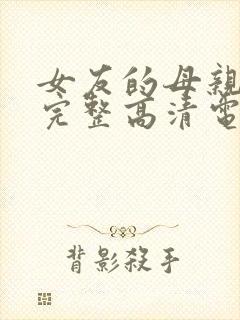 女友的母親
完整高清電
背影殺手